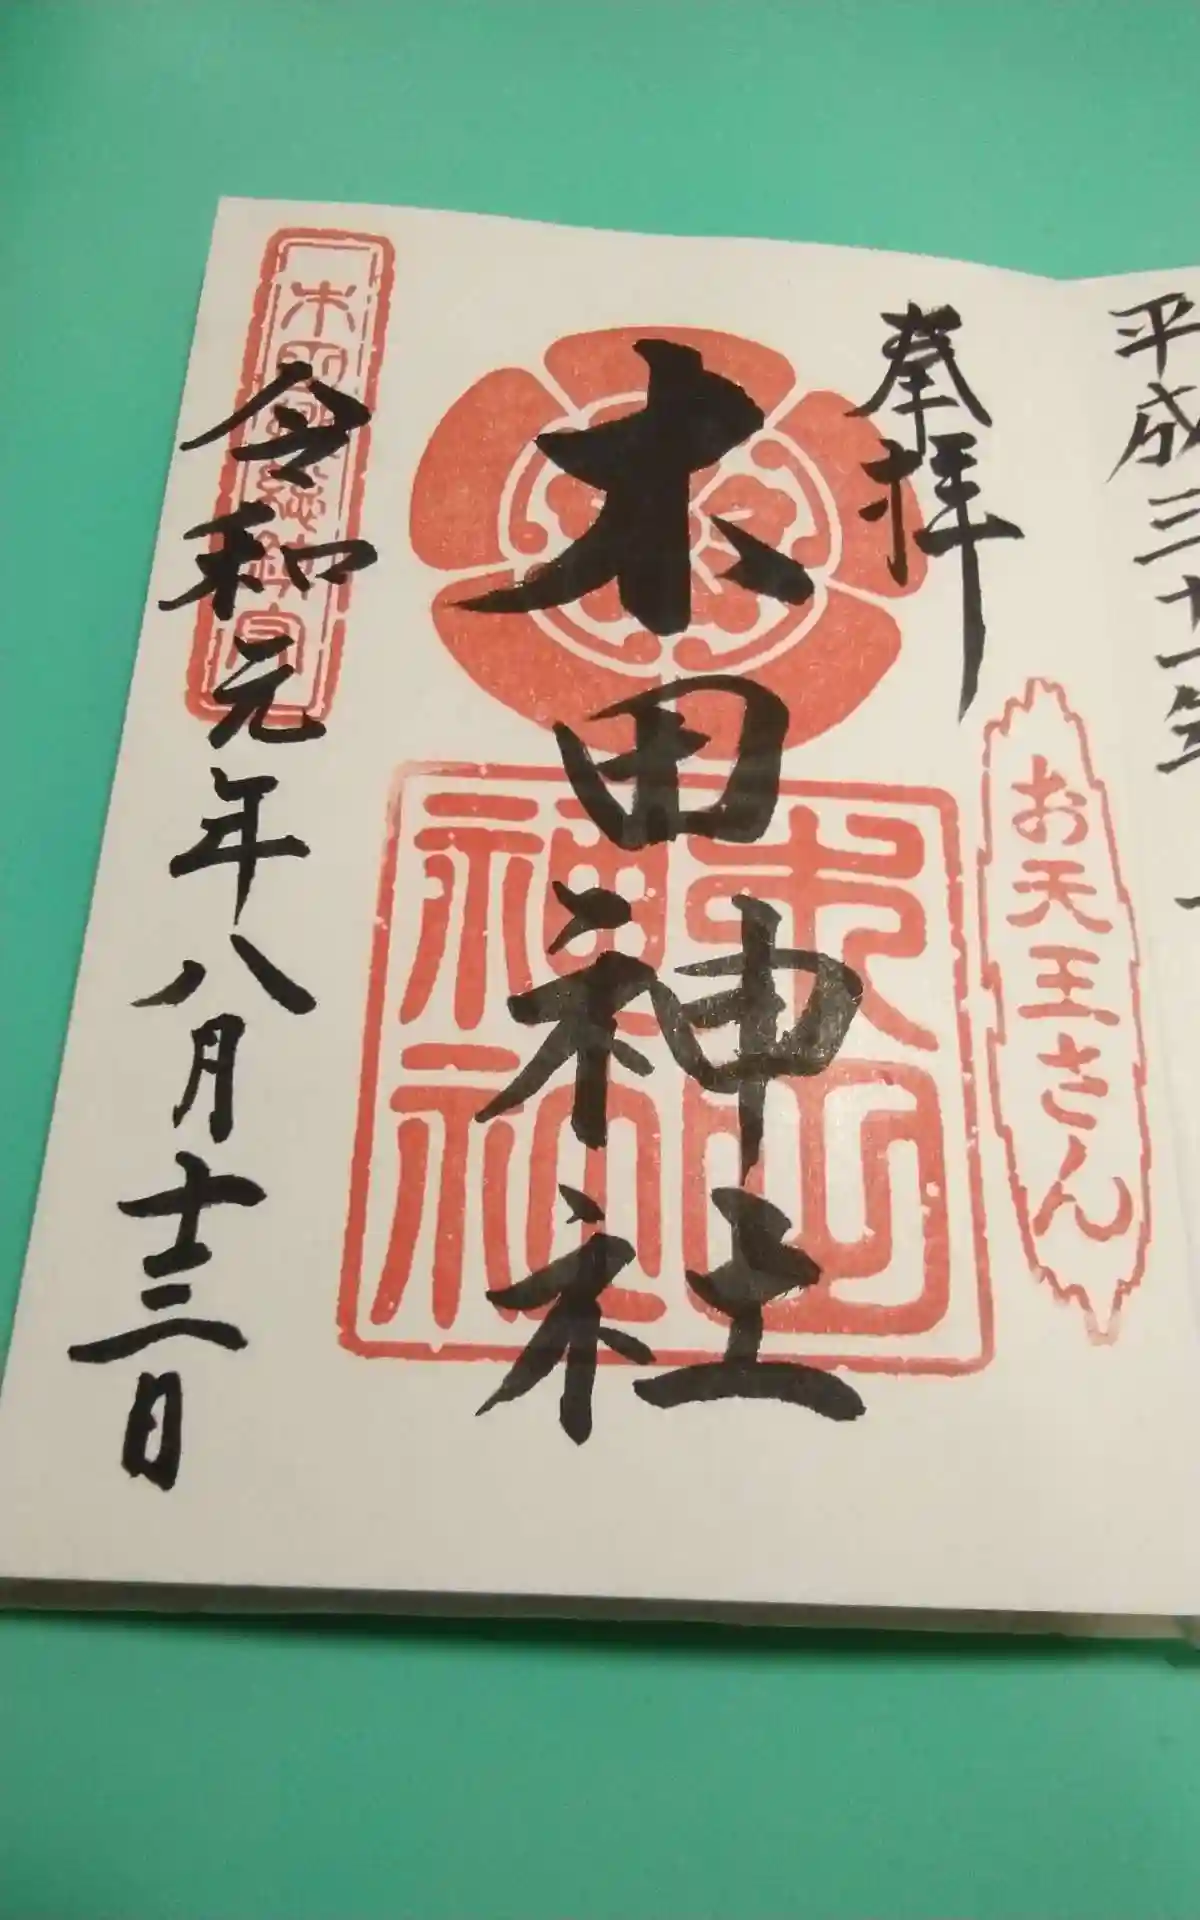 平成三十一年
奉拝
お天王さん
木田神社
木田神社
木田郷総鎮守
令和元年八月十三日